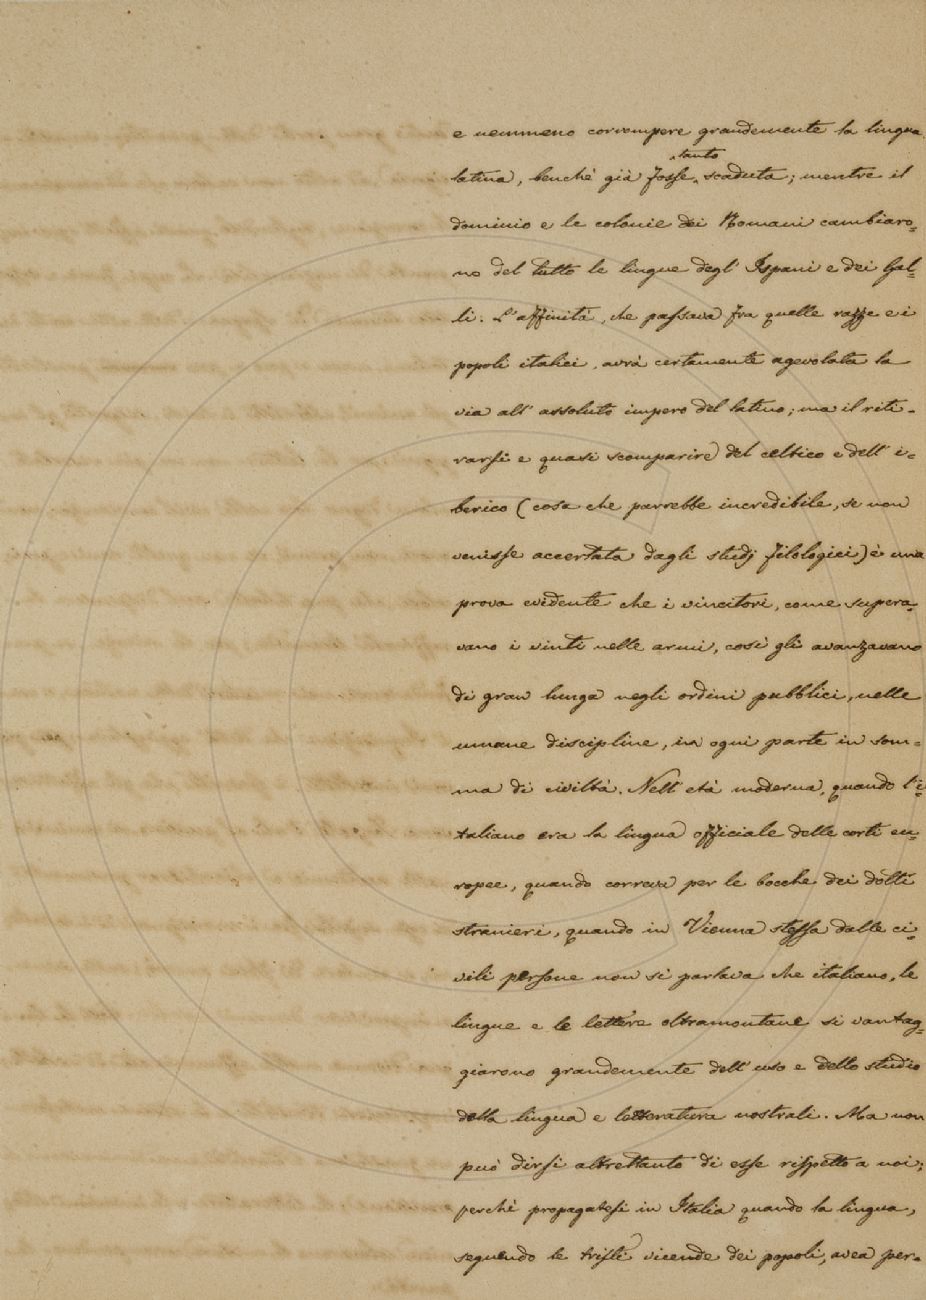 e nemmeno corrompere grandemente la lingua
latina, benchè già fosse tanto scaduta; mentre il
dominio e le colonie dei Romani cambiaro=
no del tutto le lingue degl' Ispani e dei Gal=
li. L'affinità, che passava fra quelle razze e i
popoli italici, avrà certamente agevolata la
via all' assoluto impero del latino; ma il riti=
rarsi e quasi scomparire del celtico e dell' i=
berico (cosa che parrebbe incredibile, se non
venisse accertata dagli studj filologici) è una
prova evidente che i vincitori, come supera=
vano i vinti nelle armi, così gli avanzavano
di gran lunga negli ordini pubblici, nelle
umane discipline, in ogni parte in som=
ma di civiltà. Nell' età moderna, quando l'i=
taliano era la lingua officiale delle corti eu=
ropee, quando correva per le bocche dei dotti
stranieri, quando in Vienna stessa dalle ci=
vili persone non si parlava che italiano, le
lingue e le lettere oltramontane si vantag=
giarono grandemente dell' uso e dello studio
della lingua e letteratura nostrali. Ma non
può dirsi altrettanto di esse rispetto a noi;
perchè propagatesi in Italia quando la lingua,
seguendo le tristi vicende dei popoli, avea per=